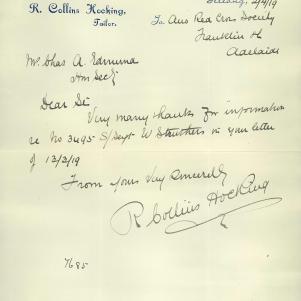 R. Collins Hocking,
Tailor.
2/4/19
To Aus Red Cross Society
Franklin St
Adelaide
Mr Chas A. Edmunds
Hon Secy
Dear Sir
Very many thanks for information
re No 3495 S/Sergt W Struthers in your letter
of 13/3/19
From yours Very Sincerely
R Collins Hocking
7685